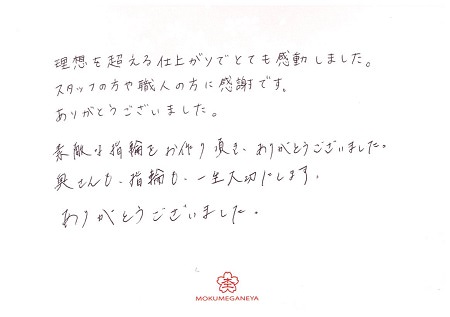 理想を超える仕上がりでとても感動しました。
スタッフの方や職人の方に感謝です。
ありがとうございました。
素敵な指輪をお作り頂き、ありがとうございました。
奥さんも、指輪も、一生大切にします。
ありがとうございました。
MOKUMEGANEYA